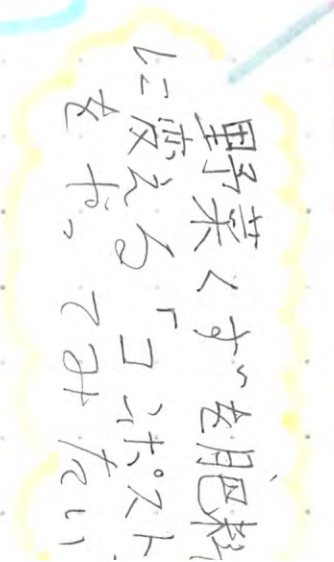 野菜くずを肥料
に変える「コンポスト
をやってみたい